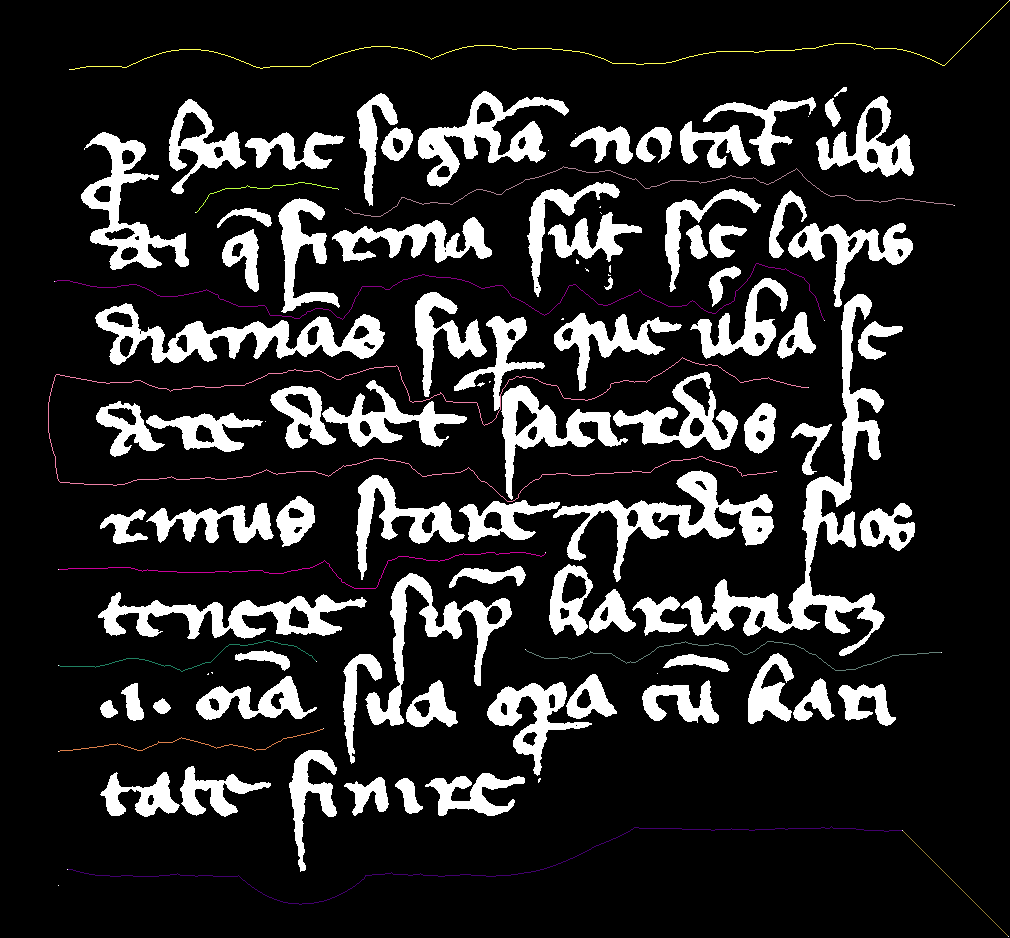 ꝓ hanc ſoghā notāt̄ u̇ba
dei q̄ firma ſūt ſic̄ lapis
diamās ſuꝑ que u̇ba ſe
dere debēt ſacerdos ⁊ fi
rmus ſtare ⁊ pedes ſuos
tenere ſup̄ karitatez
.i. oīa ſua oꝑa cū kari
tate finire